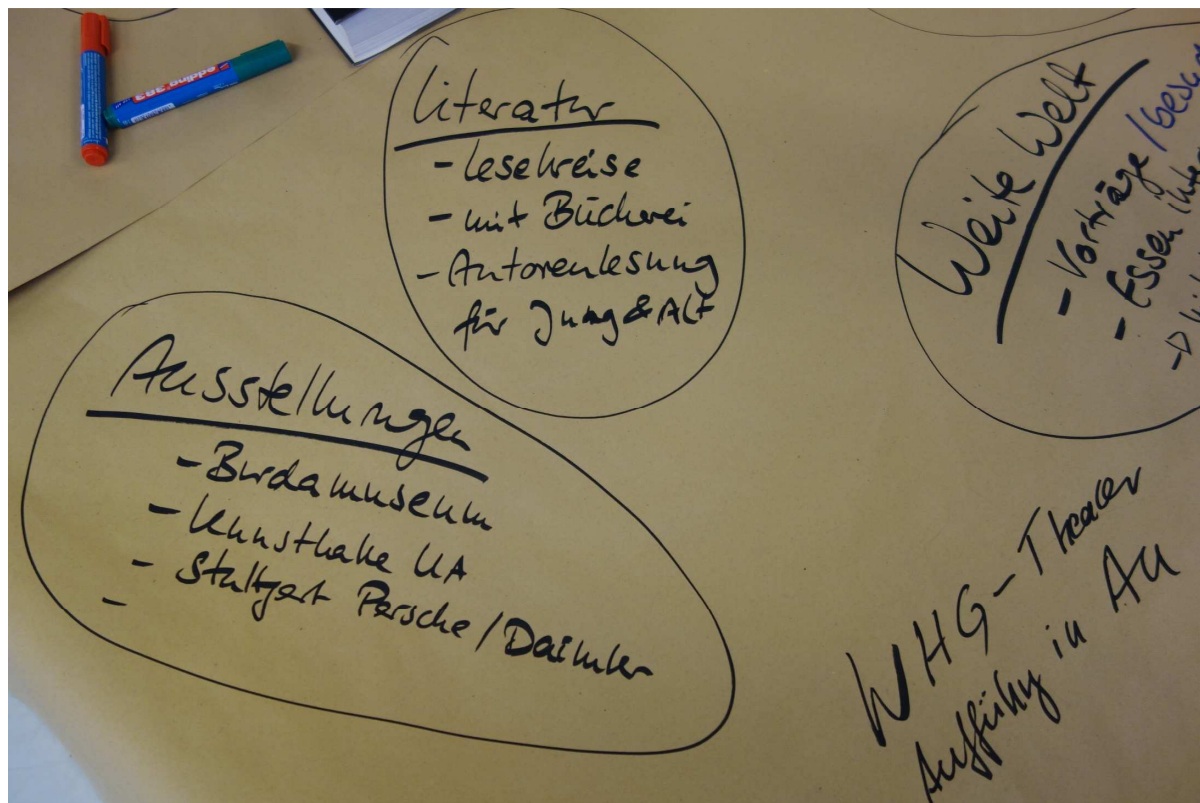 edding 383
Literatur
- Lesekreise
- mit Bücherei
- Autorenlesung
für Jung & Alt
Weite Welt
- Vorträge /
- Essen
Ausstellungen
- Burdamuseum
- Kunsthalle KA
- Stuttgart Porsche / Daimler
-
WHG-Theater
Aufführg in Au